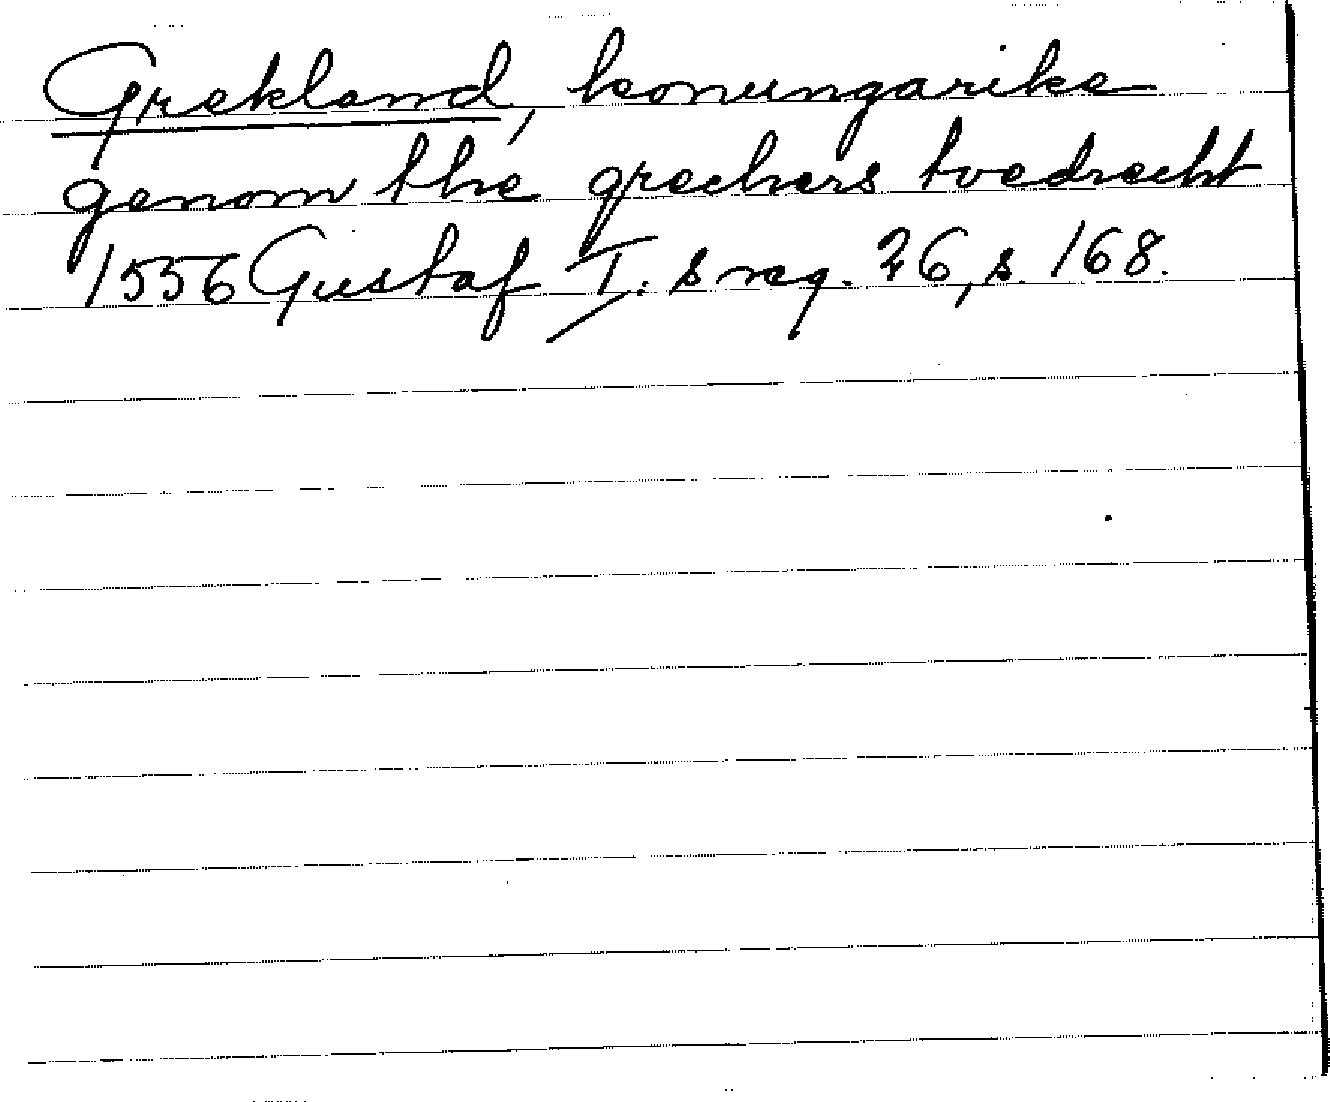 Grekland, konungarike
genom the grechers tvedrecht
1556 Gustaf I:s reg. 26, s. 168.